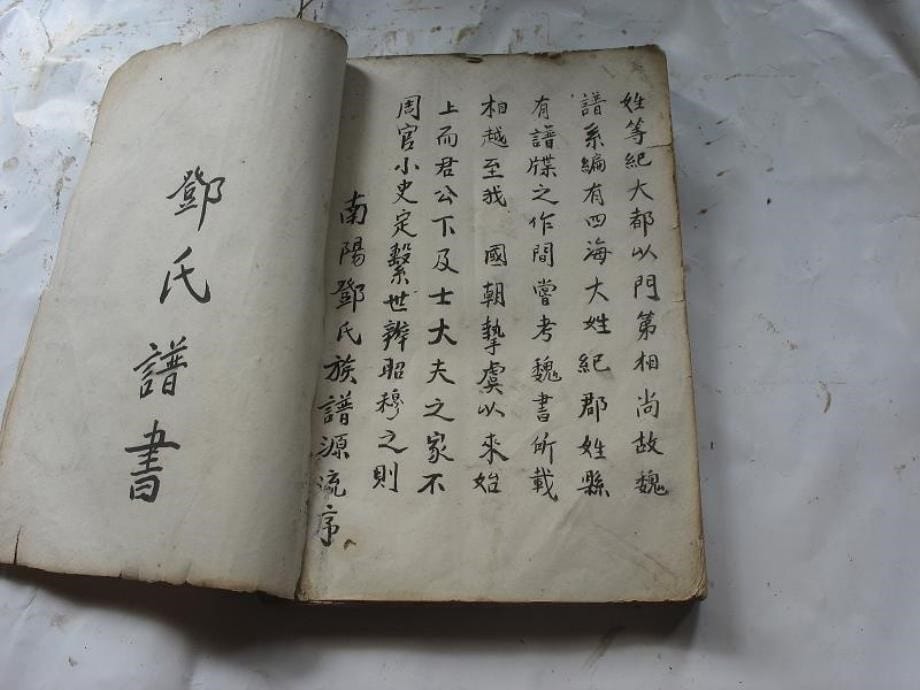 鄧氏譜書
南陽鄧氏族譜源流序
周官小史定繫世辨昭穆之則
上而君公下及士大夫之家不
相越至我 國朝摯虞以來始
有譜牒之作間嘗考魏書所載
譜系編有四海大姓紀郡姓縣
姓等紀大都以門第相尚故魏